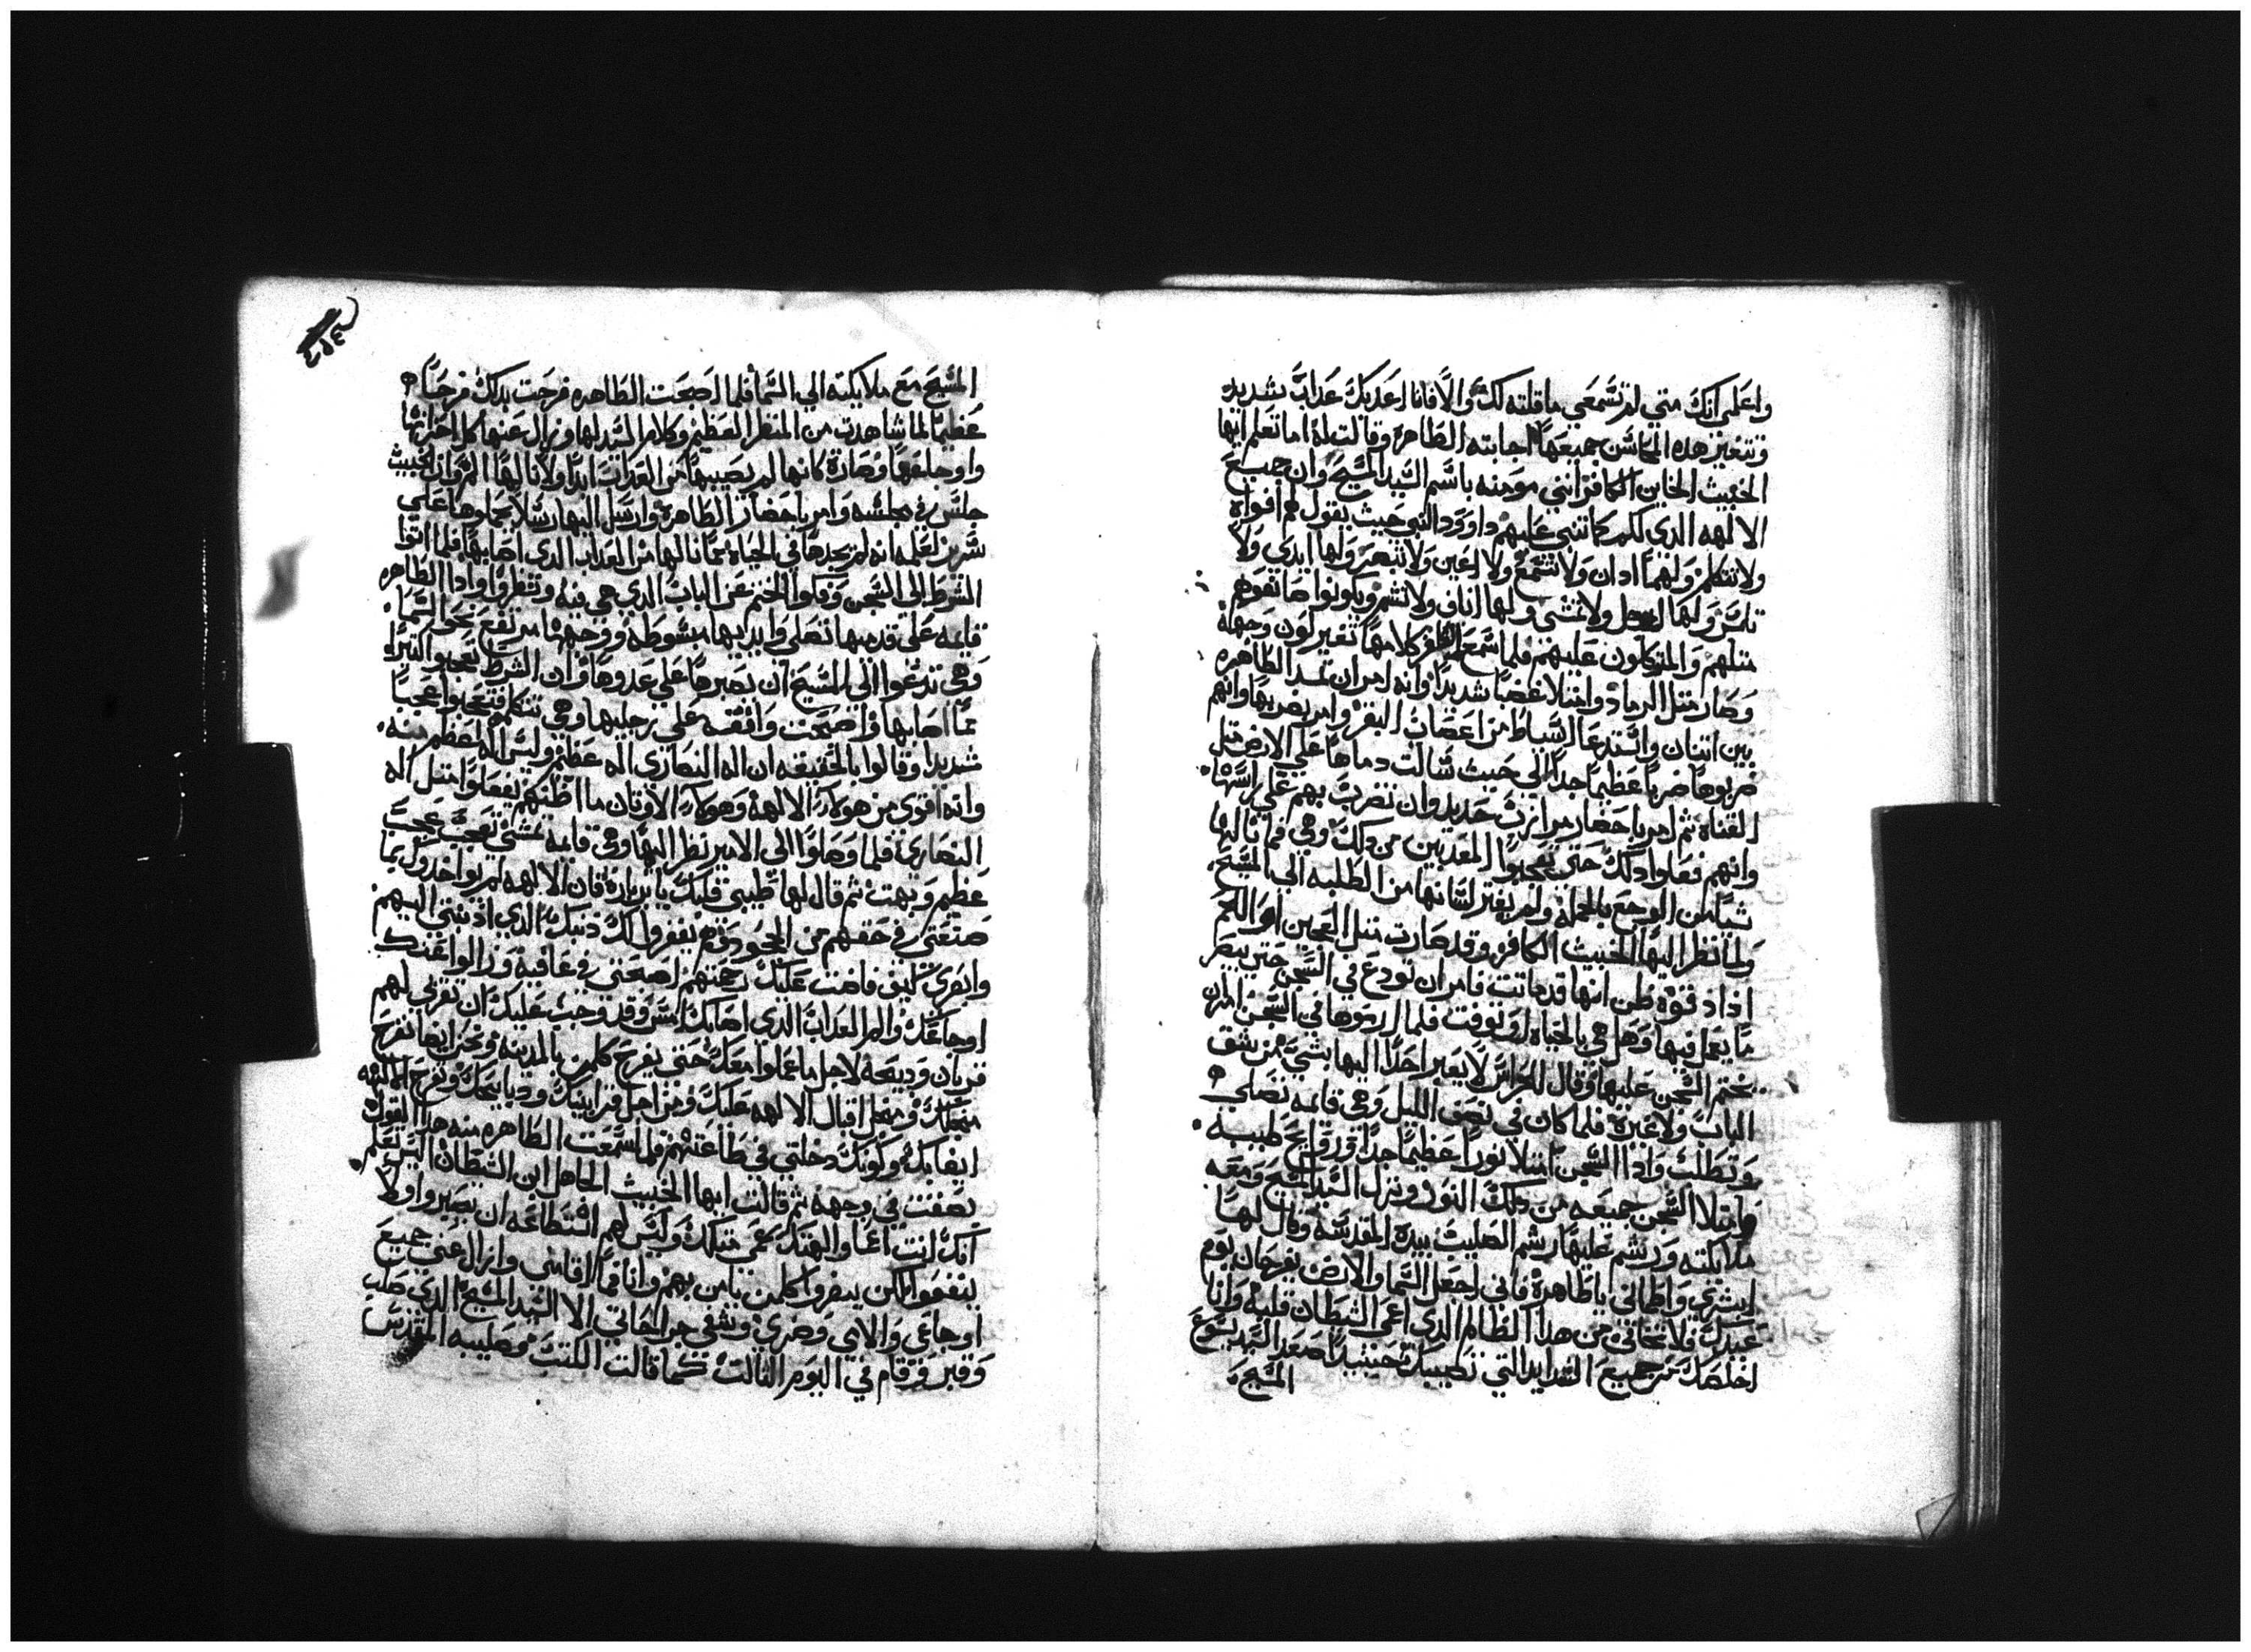 واعلمي انك متي لم تسمعي ما قلته لك والا فانا اعدبك عداب شديد
وتتغير هده المحاسن جميعها اجابته الطاهره وقالت له اما تعلم ايها
الخبيث الخاين الكافر انني مومنه باسم السيد المسيح وان جميع
الالهه الدي لكم كما تنبي عليهم داوود النبي حيث يقول لهم افواه
ولا تتكلم ولهما ادان ولا تسمع ولا اعين ولا تبصر ولها ايدي ولا
تلمس ولها ارجل ولا تمشي ولها اناف ولا تشم ويكونوا صانعوهم
متلهم والمتوكلون عليهم فلما سمع الكافر كلامها تغير لون وجهه
وصار متل الرماد وامتلا غضبا شديدا وانه امر ان تمد الطاهره
بين اتنان واستدعا السياط من اعصاب البقر وامر بضربها وانهم
ضربوها ضربا عظيما جدا الي حيت سالت دماها علي الارض متل
القناه تم امر باحضار مرازب حديد وان تضرب بهم علي راسها
وانهم فعلوا دلك حتي تعجبوا المعدبين من دلك وهي فما نالها
شيا من الوجع بالجمله ولم يفتر لسانها من الطلبه الي المسيح
ولما نظر اليها الخبيث الكافر وقد صارت متل العجين او اللحم
اداد قوه ظن انها قد ماتت فامر ان تودع في السجن حتي يبصر
ما يعمل فيها وهل هي بالحياه او توفت فلما ارموها في السجن امر ان
يختم السجن عليها وقال للحراس لا يعبر احدا اليها بشي من شق
الباب ولا غيره فلما كان في نصف الليل وهي قايمه تصلي
وتطلب وادا السجن امتلا نورا عظيما جدا وروايح طيبه
وامتلا السجن جميعه من دلك النور ونزل السيد المسيح ومعه
ملايكته ورشم عليها رشم الصليب بيده المقدسه وقال لها
ابشري واطماني يا طاهره فاني اجعل السما والارض يفرحان يوم
عيدك فلا تخافي من هدا الظالم الدي اعمي الشيطان قلبه وانا
اخلصك من جميع الشدايد التي تصيبك حينيدا صعد السيد يسوع
المسيح
المسيح مع ملايكته الي السما فلما اصبحت الطاهره فرحت بدلك فرحا
عظيما لما شاهدت من المنظر العظيم وكلام السيد لها وزال عنها كل احزانها
واوجاعها وصاره كانها لم يصيبها من العداب ابدا ولا نالها الم وان الخبيث
جلس في مجلسه وامر باحضار الطاهره وارسل اليها رسلا يحملوها علي
سرير لعلمه انه لم يجدها في الحياه مما نالها من العداب الدي اصابها فلما اتوا
الشرط الي السجن وفكوا الختم عن الباب الدي هي فيه ونظروا وادا الطاهره
قايمه علي قدميها تصلي وايديها مبسوطه ووجهها مرتفع نحو السما
وهي تدعوا الي المسيح ان ينصرها علي عدوها وان الشرط تعجبوا لتبرا
مما اصابها واصبحت واقفه علي رجليها وهي تتكلم فتعجبوا عجبا
شديدا وقالوا بالحقيقه ان اله النصاري اله عظيم وليس اله اعظم منه
وانه اقوي من هولاء الالهه وهولاء الاوتان ما اظنهم يفعلوا متل اله
النصاري فلما وصلوا الي الامير نظر اليها وهي قايمه تمشي تعجب عجب
عظيم وبهت تم قال لها طيبي قلبك يا برباره فان الالهه لم يواخدوك بما
صنعتي في حقهم من الجحود وهم يغفروا لك دنبك الدي ادنبتي اليهم
وانظري كيف فاضت عليك رحمتهم اصبحتي في عافيه وزالوا عنك
اوجاعك والم العداب الدي اصابك امس وقد وجب عليك ان تقربي لهم
قربان ودبيحه لاجل ما عملوا معك حتي يفرح كلمن بالمدينه ونحن ايضا نفرح
من اجلك ومن اجل اقبال الالهه عليك ومن اجل قرابينك ودبايحك وتفرح الالهه
ايضا بك ولكونك دخلتي في طاعتهم فلما سمعت الطاهره منه هدا القول
بصقت في وجهه تم قالت ايها الخبيث الجاهل ابن الشيطان اليس تعلم
انك انت اعما والهتك عمي متلك وليس لهم استطاعه ان يضروا ولا
ينفعوا لكن يضروا كلمن يامن بهم وانا فما اقامني وازال عني جميع
اوجاعي والامي وضري وشفي جراحاتي الا السيد المسيح الدي صلب
وقبر وقام في اليوم التالت كما قالت الكتب وصليبه المقدس